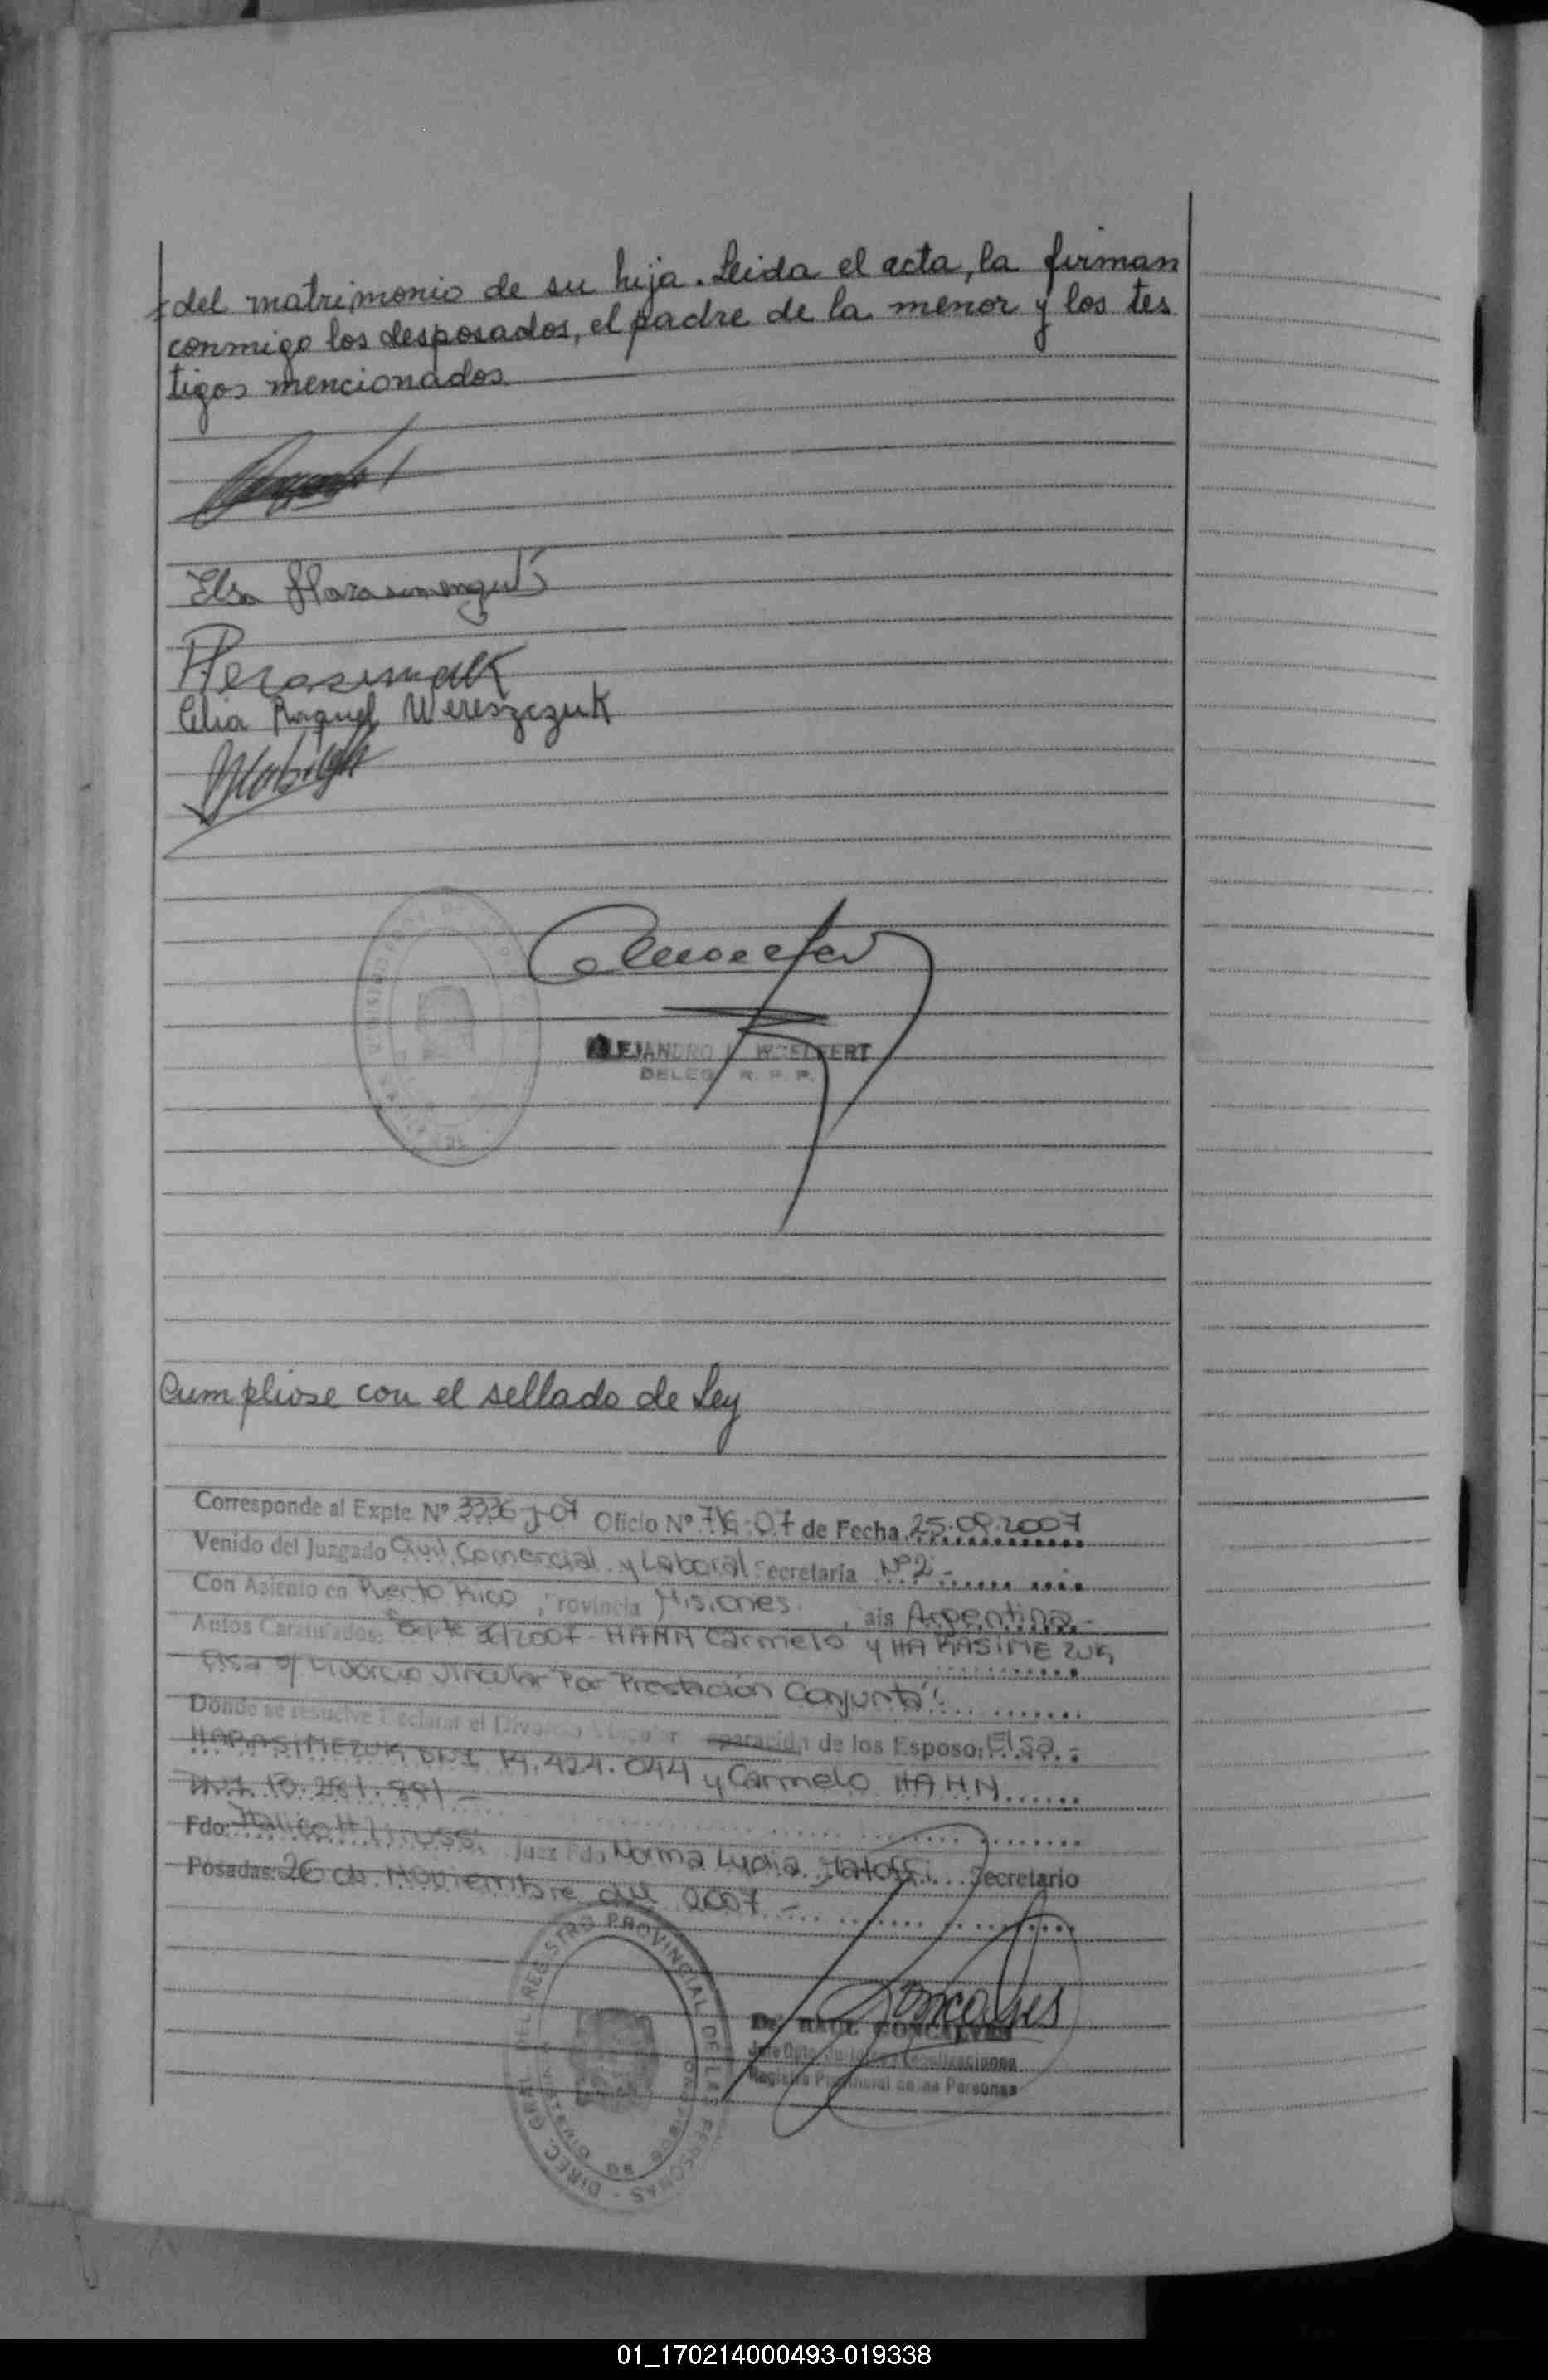 del matrimonio de su hija. Leida el acta, la firman
conmigo los desposados, el padre de la menor y los tes
tigos mencionados
Elsa
Celia Raquel Wereszczuk
ALEJANDRO
DELEG. R. P. P.
Cumpliose con el sellado de Ley
Corresponde al Expte Nº 3336-J-07 Oficio Nº 716-07 de Fecha 25.09.2007
Venido del Juzgado Civil, Comercial y Laboral Secretaría Nº 2 -
Con Asiento en Puerto Rico, Provincia Misiones, País Argentina.-
Autos Caratulados: Expte 36/2007 - HAHN Carmelo y HARASIMEZUK
Elsa s/ Divorcio Vincular Por Prestación Conjunta"
Donde se resuelve Declarar el Divorcio Vincular de los Esposo: Elsa.-
HARASIMEZUK DNI 14.424.044 y Carmelo HAHN
DNI
Fdo: Juez Fdo Norma Lydia Secretario
Posadas: 26 de Noviembre del 2007 -
DIREC. GRAL. DEL REGISTRO PROVINCIAL DE LAS PERSONAS
MISIONES
Dr. RAUL GONCALVES
Jefe Dpto. Legalizaciones
Registro Provincial de las Personas
01_170214000493-019338